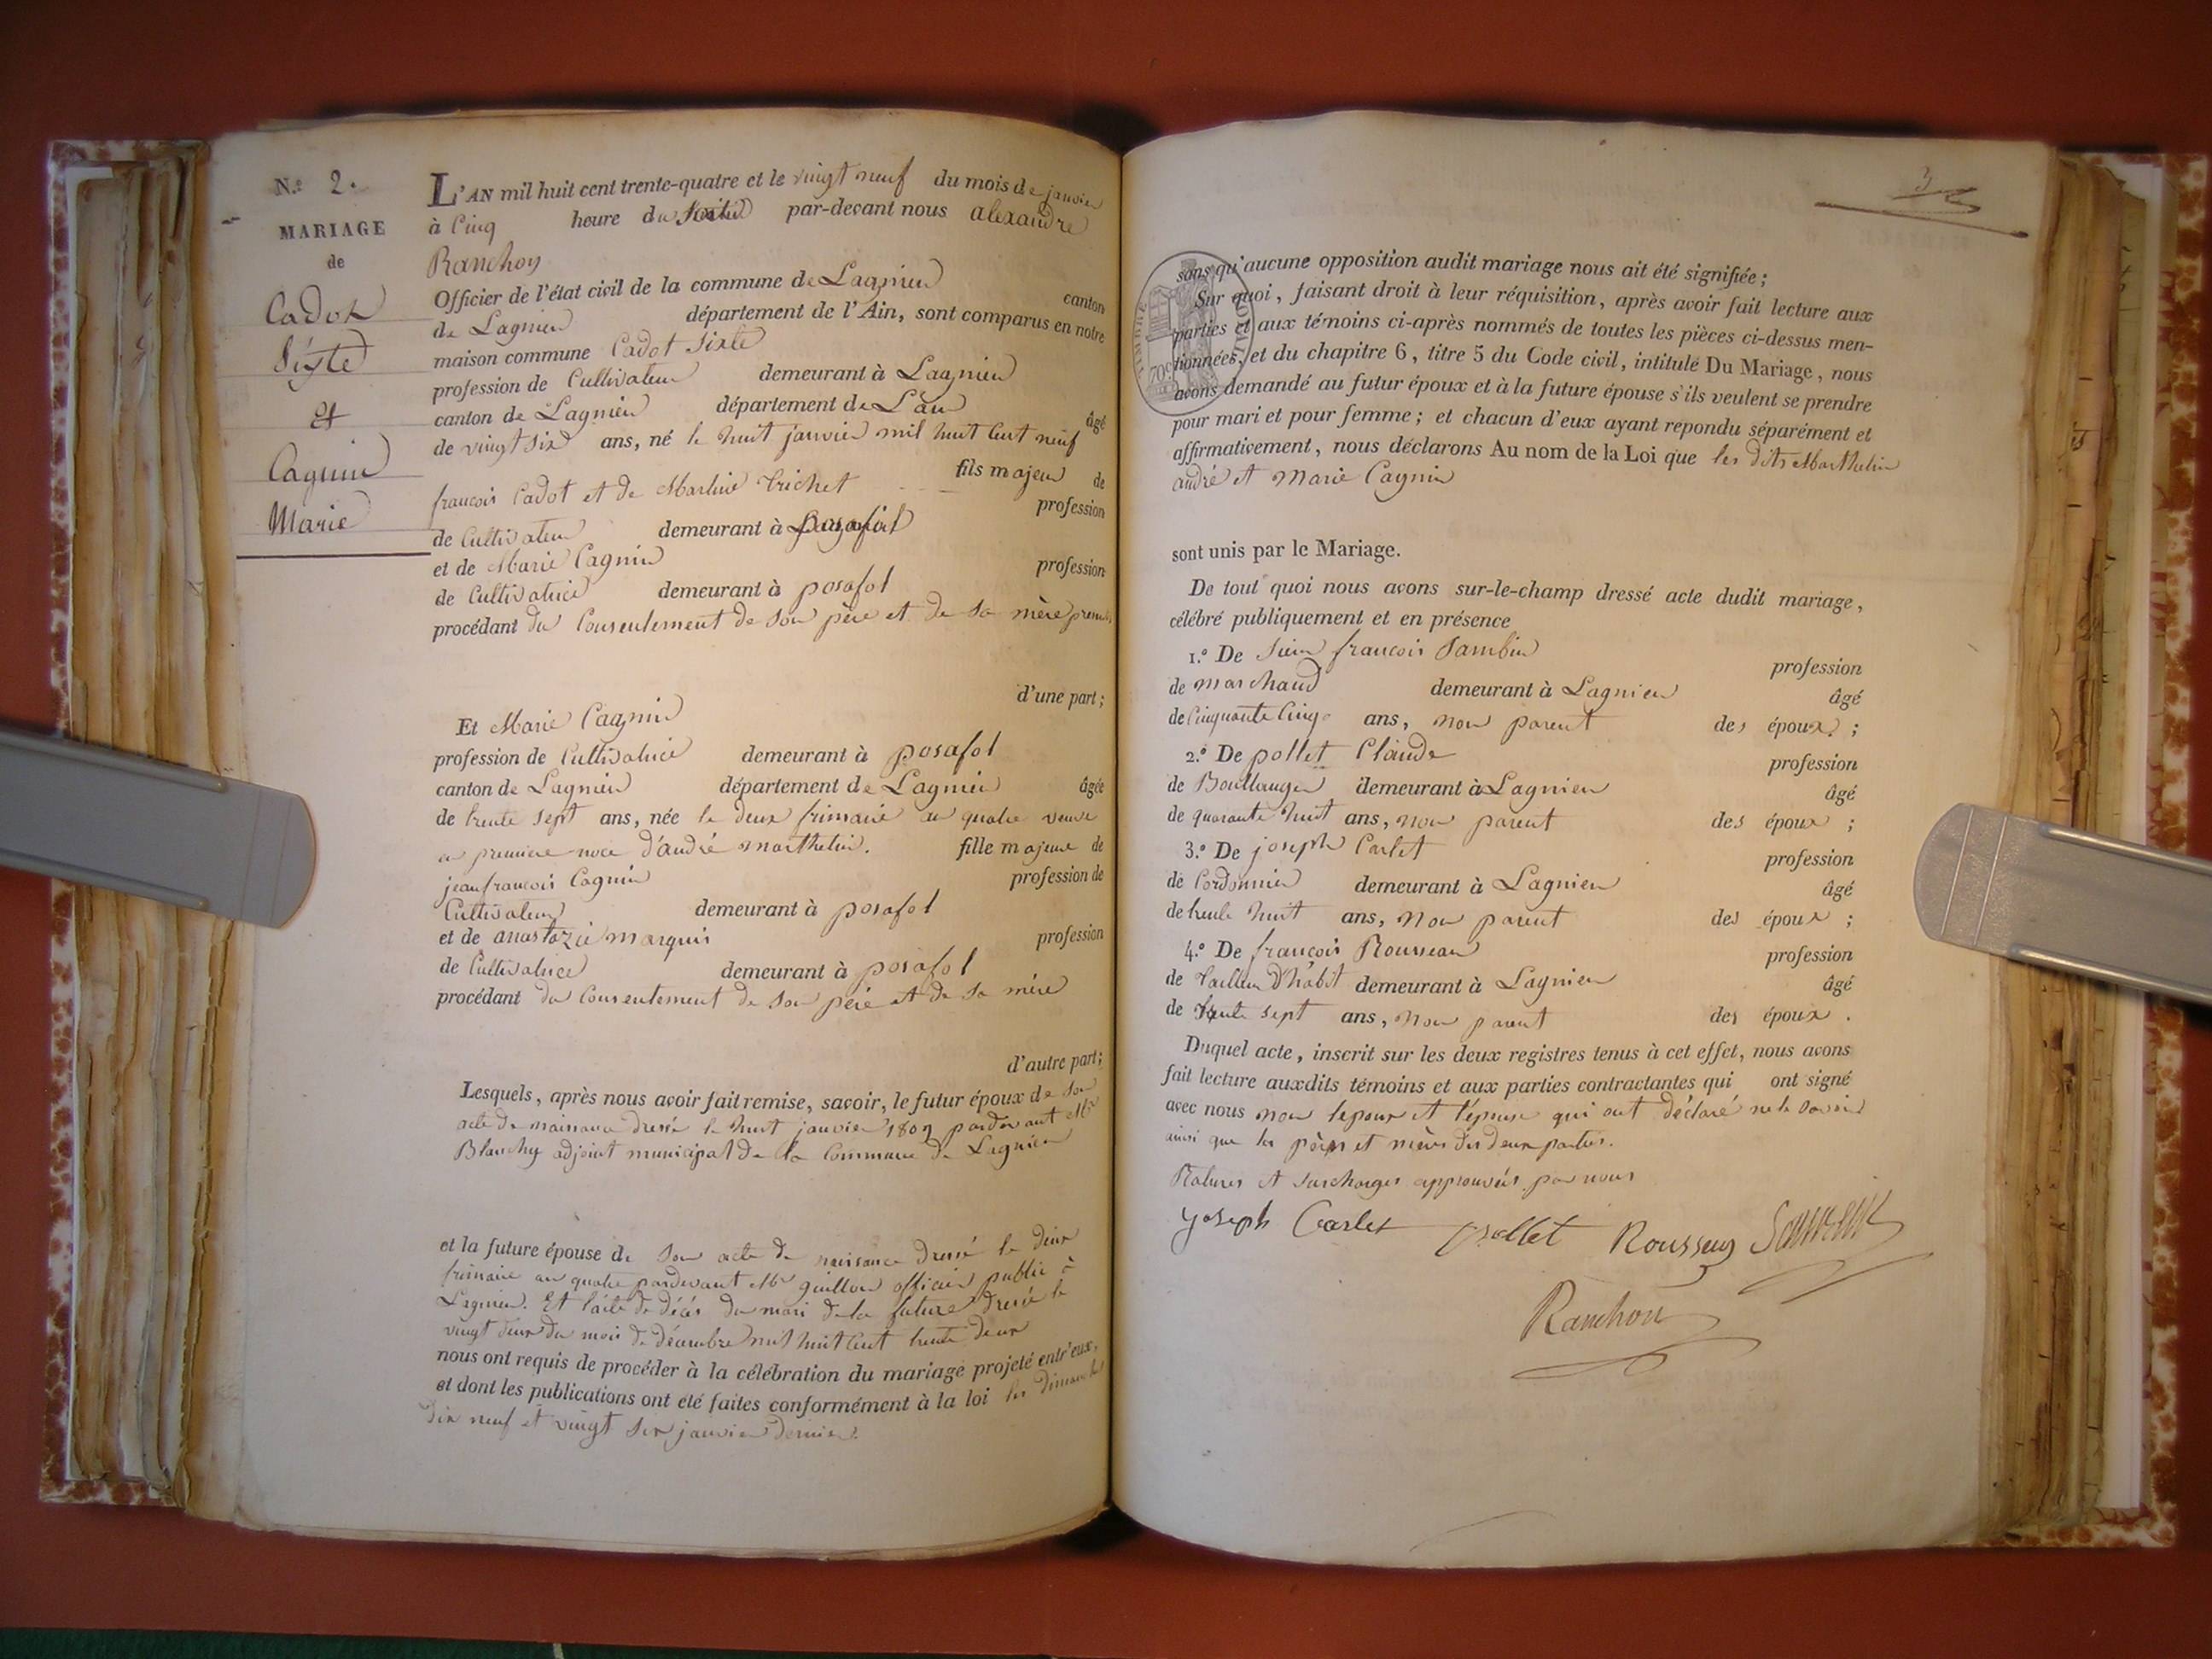 N.o 2.
MARIAGE
de
Cadot
Sixte
et
Cagnin
Marie
L'AN mil huit cent trente-quatre et le vingt neuf du mois de janvier
à cinq heure du par-devant nous alexandre
Ranchon
Officier de l'état civil de la commune de Lagnieu canton
de Lagnieu département de l'Ain, sont comparus en notre
maison commune Cadot Sixte
profession de Cultivateur demeurant à Lagnieu
canton de Lagnieu département de L'ain âgé
de vingt six ans, né le huit janvier mil huit cent neuf
fils majeur de
françois Cadot et de Martine trichet profession
de Cultivateur demeurant à posafol
et de Marie Cagnin profession
de Cultivatrice demeurant à posafol
procédant du Consentement de son père et de sa mère
d'une part;
Et Marie Cagnin
profession de Cultivatrice demeurant à posafol
canton de Lagnieu département de Lagnieu âgée
de trente sept ans, née le deux frimaire an quatre veuve
en premiere noce d'andré marthelin. fille majeure de
jean françois Cagnin profession de
Cultivateur demeurant à posafol
et de anastazie marquis profession
de Cultivatrice demeurant à posafol
procédant du Consentement de son père et de sa mère
d'autre part;
Lesquels, après nous avoir fait remise, savoir, le futur époux de son
acte de naissance dressé le huit janvier 1809 pardevant Mr
Blanchy adjoint municipal de la Commune de Lagnieu
et la future épouse de son acte de naissance dressé le deux
frimaire an quatre pardevant Mr guillon officier public à
Lagnieu. Et l'acte de décés du mari de la future dressé le
vingt deux du mois de décembre mil huit cent trente deux
nous ont requis de procéder à la célébration du mariage projeté entr'eux,
et dont les publications ont été faites conformément à la loi les dimanches
dix neuf et vingt six janvier dernier.
3
TIMBRE ROYAL
70c
sans qu'aucune opposition audit mariage nous ait été signifiée;
Sur quoi, faisant droit à leur réquisition, après avoir fait lecture aux
parties et aux témoins ci-après nommés de toutes les pièces ci-dessus men-
tionnées, et du chapitre 6, titre 5 du Code civil, intitulé Du Mariage, nous
avons demandé au futur époux et à la future épouse s'ils veulent se prendre
pour mari et pour femme; et chacun d'eux ayant répondu séparément et
affirmativement, nous déclarons Au nom de la Loi que les dits Marthelin
andré et Marie Cagnin
sont unis par le Mariage.
De tout quoi nous avons sur-le-champ dressé acte dudit mariage,
célébré publiquement et en présence
1.o De Sieur françois Sambin profession
de marchand demeurant à Lagnieu âgé
de Cinquante Cinq ans, non parent des époux;
2.o De pollet Claude profession
de Boullanger demeurant à Lagnieu âgé
de quarante huit ans, non parent des époux;
3.o De joseph Carlet profession
de Cordonnier demeurant à Lagnieu âgé
de trente huit ans, non parent des époux;
4.o De françois Rousseau profession
de tailleur d'habit demeurant à Lagnieu âgé
de trente sept ans, non parent des époux.
Duquel acte, inscrit sur les deux registres tenus à cet effet, nous avons
fait lecture auxdits témoins et aux parties contractantes qui ont signé
avec nous non lepoux et l'épouse qui ont déclaré ne le savoir
ainsi que les pères et mères des deux parties.
Ratures et surcharges approuvées par nous
Joseph Carlet pollet Rousseau
Ranchon